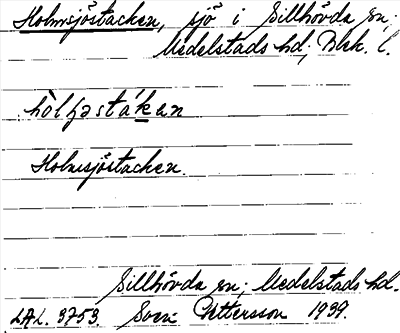 Holmsjöstacken, sjö i Sillhövda sn;
Medelstads hd; Blek. l.
hòlʃəstákən
Holmsjöstacken.
Sillhövda sn; Medelstads hd.
LAL. 3753 Sven Pettersson 1939.